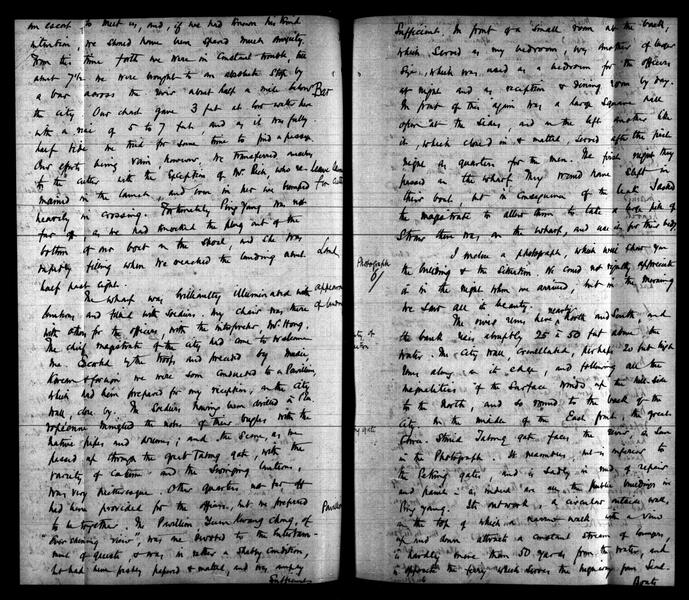 an escort to meet us, and, if we had known his kind
intention, we should have been spared much anxiety.
From this time forth we were in constant trouble, till
about 7 h we were brought to an absolute stop by
a bar across the river about half a mile below
Bar
the city. Our chart gave 3 feet at low water here
with a rise of 5 to 7 feet, and as it was fully
half tide we tried for some time to find a passage.
Our efforts being vain however, we transferred
to the cutter with the exception of Mr.
mained in the launch, and even in her we bumped
heavily in crossing. Fortunately Ping Yang was not
far off as we had knocked the plug out of the
bottom of our boat in the shoal, and she was
rapidly filling when we reached the landing about
Land
half past eight.
The wharf was brilliantly illuminated with
lanterns and filled with soldiers. My chair was there
with others for the officers, with the interpreter, Mr. Hong.
The chief magistrate of the city had come to welcome
me. Escorted by the troops and preceded by music,
Korean & foreign we were soon conducted to a Pavilion,
which had been prepared for my reception, on the city
wall close by. The soldiers having been drilled in
mingled the notes of their bugles with the
native pipes and drums; and the scene, as we
passed up through the great Tatong gate, with the
variety of costume and the swinging lanterns,
was very picturesque. Other quarters not far off
had been provided for the officers, but we preferred
to be together. The Pavilion
Pavilion
"over shining view", was devoted to the entertain-
ment of guests & was in rather a shabby condition,
but had been freshly papered & matted, and was amply
Sufficient
Sufficient. In front of a small room at the back,
which served as my bedroom, was another of larger
size, which was used as a bedroom for the officers
at night and as reception & dining room by day.
In front of this again was a large square hall
open at the sides, and on the left another like
it, which closed in & matted, served after the first
night as quarters for the men. The first night they
passed on the wharf. They would have slept in
their boat, but in consequence of the leak I asked
the magistrate to allow them to take a large pile of
straw there was, on the wharf, and use it for their beds.
I enclose a photograph, which will show you
Photograph
the building & the situation. We could not rightly appreciate
it in the night when we arrived, but in the morning
we saw all its beauty.
The river runs here nearly North and South, and
the bank rises abruptly 25 to 50 feet above the
water. The city wall crenellated, perhaps 20 feet high
runs along on its edge, and following all the
inequalities of the surface winds up the hill side
to the North, and so round to the back of the
city. In the middle of the East front the great
Tatong gate faces the river as seen
in the Photograph. It resembles, but is inferior to
the Peking gates, and is sadly in need of repair
and paint - as indeed are all the public buildings in
Ping yang. Its outwork, a circular outside wall,
on the top of which a narrow walk with a view
up and down attracts a constant stream of loungers,
is hardly more than 50 yards from the water, and
is opposite the ferry which serves the highway from Seoul.
Boats